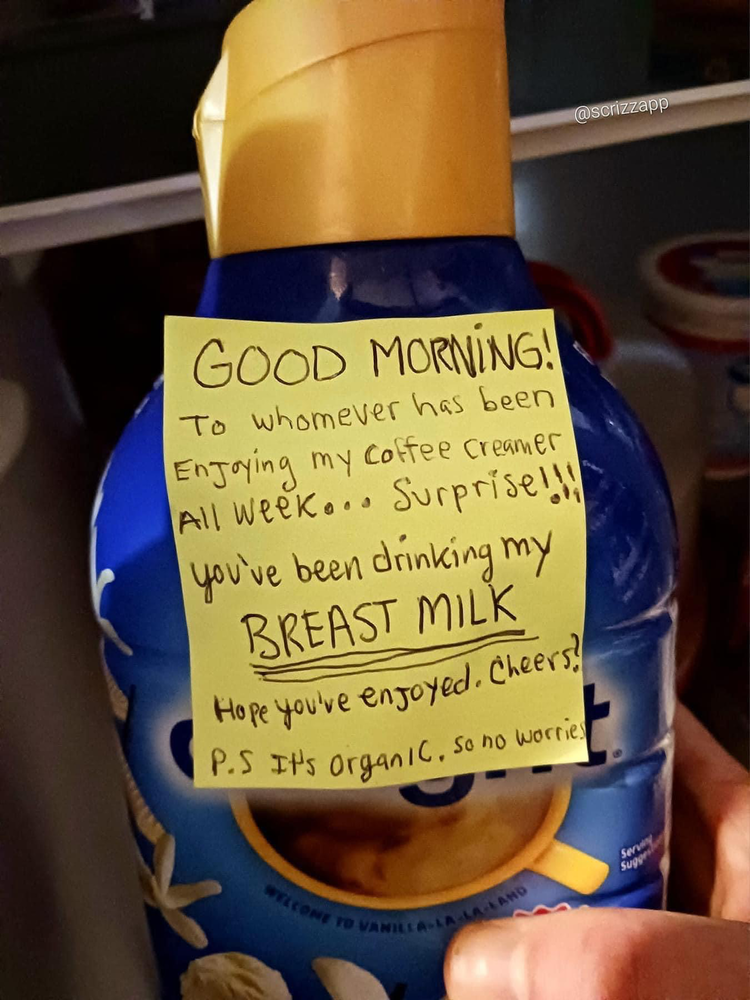 @scrizzapp
GOOD MORNING!
To whomever has been
Enjoying my coffee creamer
All week... Surprise!!!
you've been drinking my
BREAST MILK
Hope you've enjoyed. Cheers!
P.S It's organic. so no worries
t.
WELCOME TO VANILLA-LA-LA-LAND
Serving